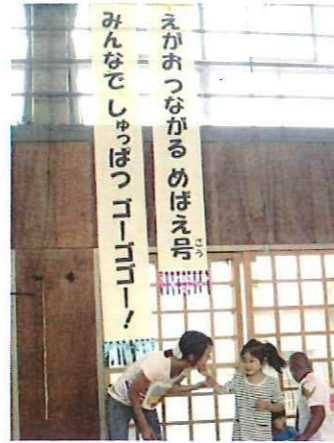 えがお つながる めばえ号
ごう
みんなで しゅっぱつ ゴーゴゴー！